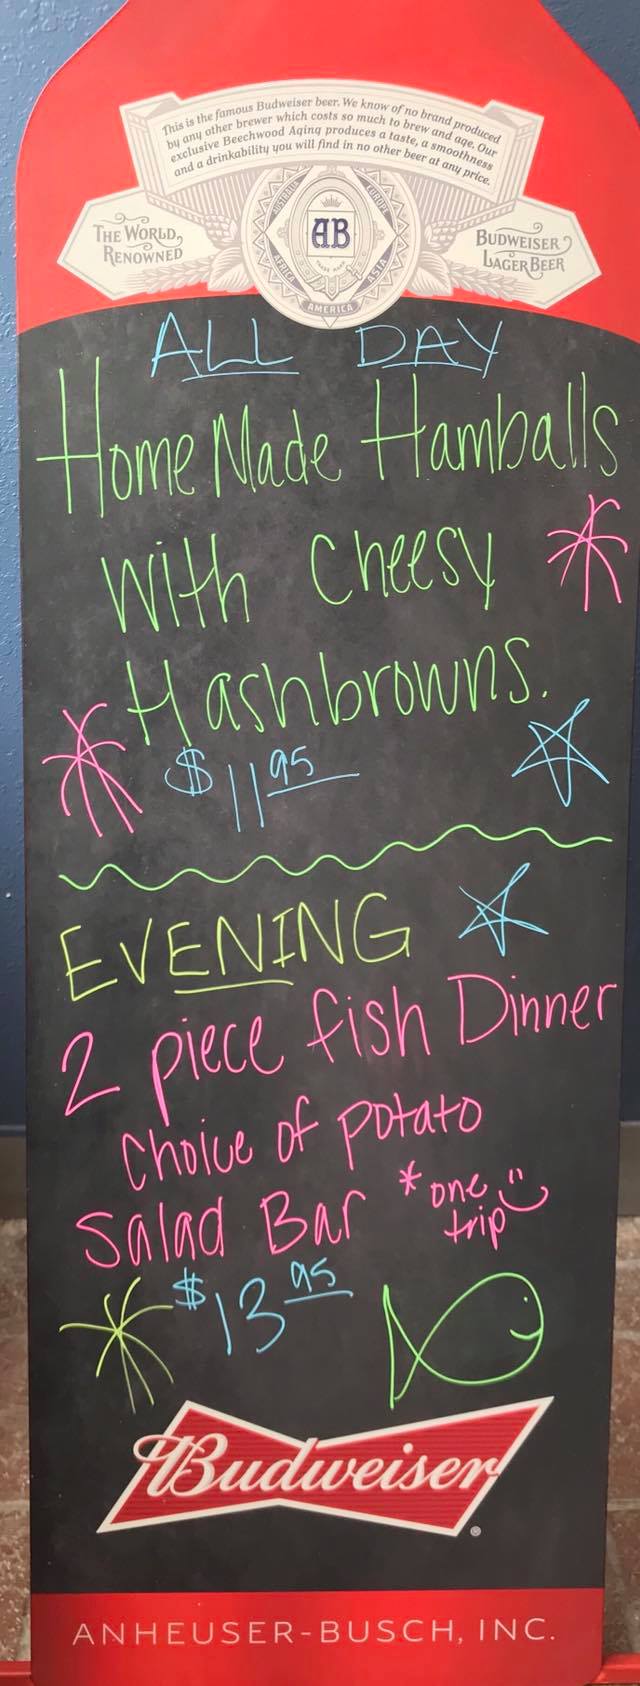 This is the famous Budweiser beer. We know of no brand produced
by any other brewer which costs so much to brew and age. Our
exclusive Beechwood Aging produces a taste, a smoothness
and a drinkability you will find in no other beer at any price.
THE WORLD,
RENOWNED
BUDWEISER
LAGER BEER
AUSTRALIA
EUROPE
AB
TRADE MARK
AFRICA
ASIA
AMERICA
ALL DAY
Home Made Hamballs
with Cheesy
Hashbrowns.
$11 95
EVENING
2 piece fish Dinner
Choice of potato
Salad Bar *one
trip
$13 95
Budweiser
®
ANHEUSER-BUSCH, INC.